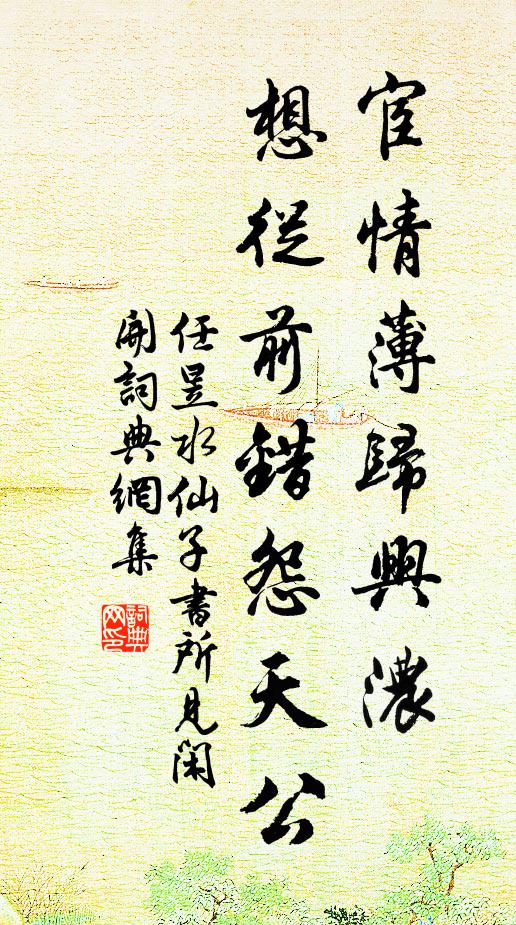 宦情薄歸興濃
想從前錯怨天公
任昱水仙子書所見閑
開詞典網集
詞典网印